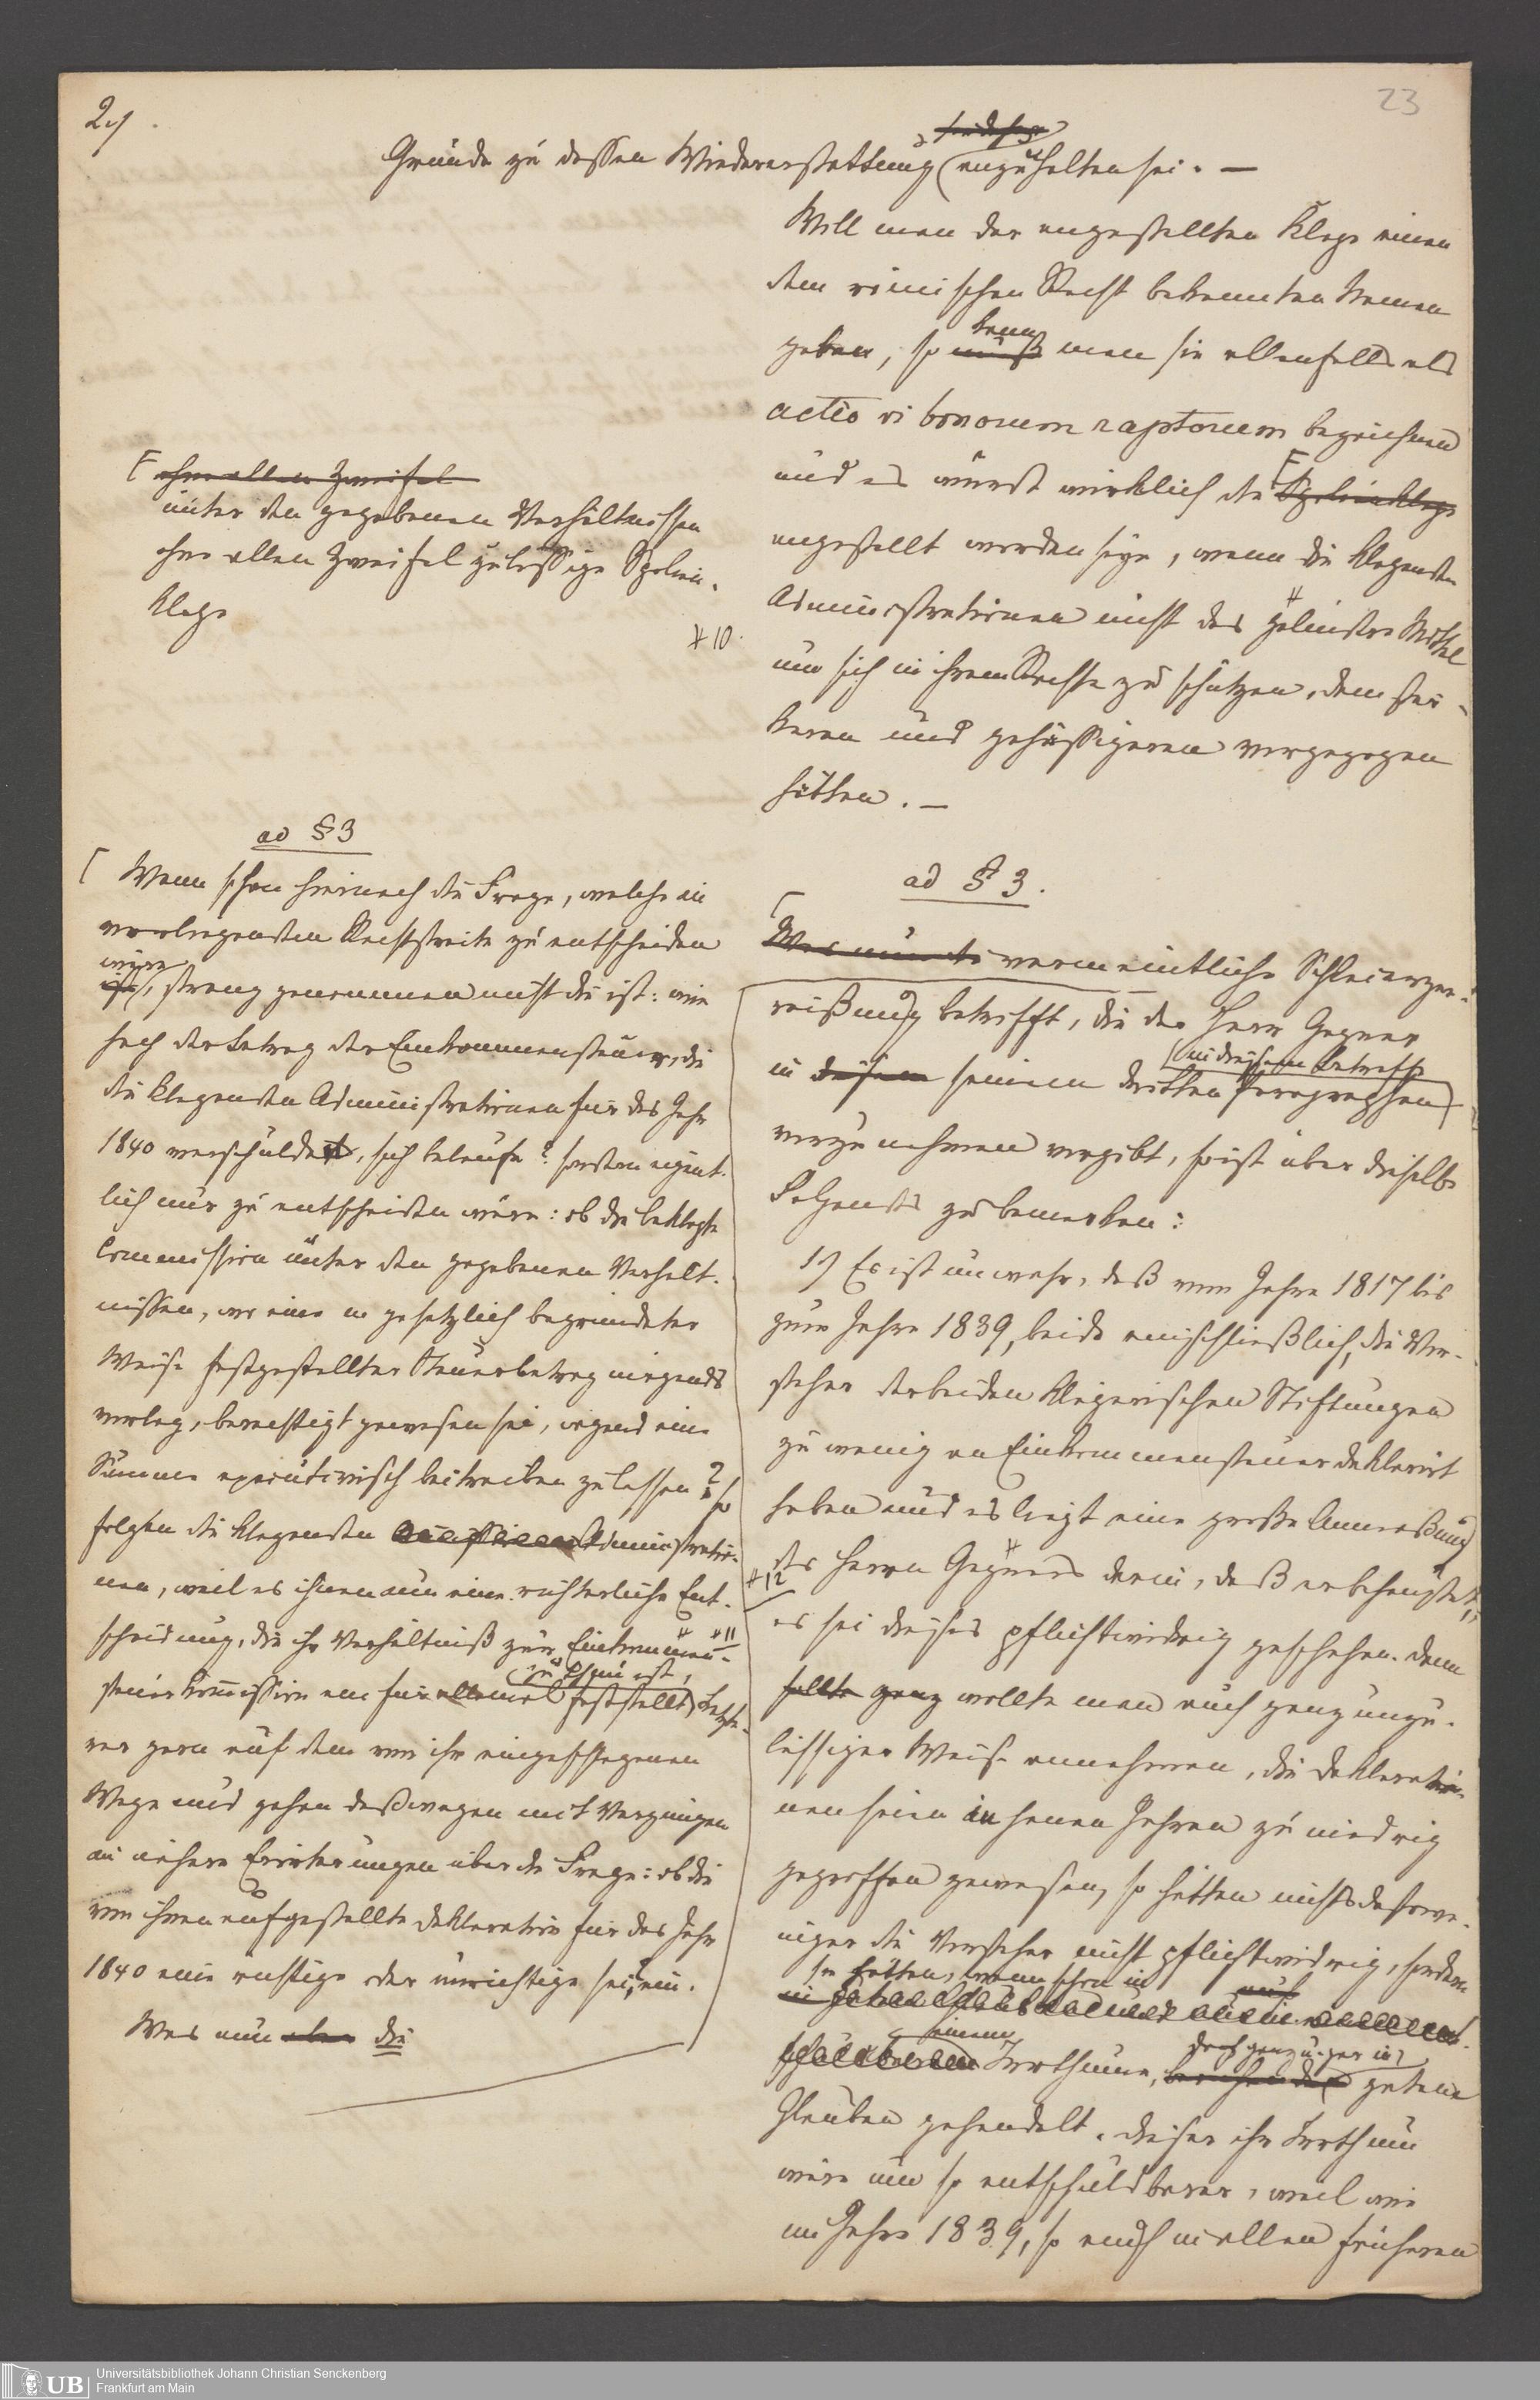 2.)
23
Gründe zu dessen Wiedererstattung anzuhalten sei. —
Will man der angestellten Klage einen
dem römischen Recht bekannten Namen
geben, so muß kann man sie allenfalls als
actio vi bonorum raptorum bezeichnen
und es würde wirklich die Spolienklage
angestellt worden seyn, wenn die klagenden
Administrationen nicht das gelindere Mittel
um sich in ihrem Rechte zu schützen, dem stär-
keren und gehässigeren vorgezogen
hätten. —
ohne allen Zweifel
unter den gegebenen Verhältnissen
ohne allen Zweifel zulässige Spolien-
klage
# 10.
ad § 3
Wenn schon hiernach die Frage, welche im
vorliegenden Rechtsstreite zu entscheiden
wäre
ist, streng genommen nicht die ist: wie
hoch der Betrag der Einkommensteuer, die
die klagenden Administrationen für das Jahr
1840 verschuldet, sich belaufe? sondern eigent-
lich nur zu entscheiden wäre: ob die beklagte
Commission unter den gegebenen Verhält-
nissen, wo eine in gesetzlich begründeter
Weise festgestellter Steuerbetrag nirgends
vorlag, berechtigt gewesen sei, irgend eine
Summe executivisch beitreiben zu lassen? so
folgen die klagenden Administratio-
nen, weil es ihnen um eine richterliche Ent-
scheidung, die ihr Verhältniß zur Einkommen-
# 11
zu thun ist,
steuer Kommission ein für allemal feststellt, Letzte-
rer gern auf dem von ihr eingeschlagenen
Wege und gehen deßwegen mit Vergnügen
in nähere Erörterungen über die Frage: ob die
von ihnen aufgestellte Deklaration für das Jahr
1840 eine richtige oder unrichtige sei, ein.
Was nun aber die
ad § 3.
Was nun die vermeintliche Schleierzer-
reißung betrifft, die der Herr Gegner
in diesem Betreffe
in diesem seinem dritten Paragraphen
vorzunehmen vorgibt, so ist über dieselbe
Folgendes zu bemerken:
1) Es ist unwahr, daß vom Jahre 1817 bis
zum Jahre 1839, beide einschließlich, die Vor-
steher der beiden klägerischen Stiftungen
zu wenig an Einkommensteuer deklarirt
haben und es liegt eine große Anmaßung
# 12
des Herrn Gegners darin, daß er behauptet,
es sei dieses pflichtwidrig geschehen. Denn
sollte ganz wollte man auch ganz unzu-
lässiger Weise annehmen, die Deklaratio-
nen seien in jenen Jahren zu niedrig
gegriffen gewesen, so hätten nichtsdestowe-
niger die Vorsteher nicht pflichtwidrig, sondern
sie hätten, wenn schon in
einem
doch ganz u. gar in
Irrthume, beruhenden gutem
Glauben gehandelt. Dieser ihr Irrthum
wäre um so entschuldbarer, weil wie
im Jahre 1839, so auch in allen früheren
Universitätsbibliothek Johann Christian Senckenberg
Frankfurt am Main
UB